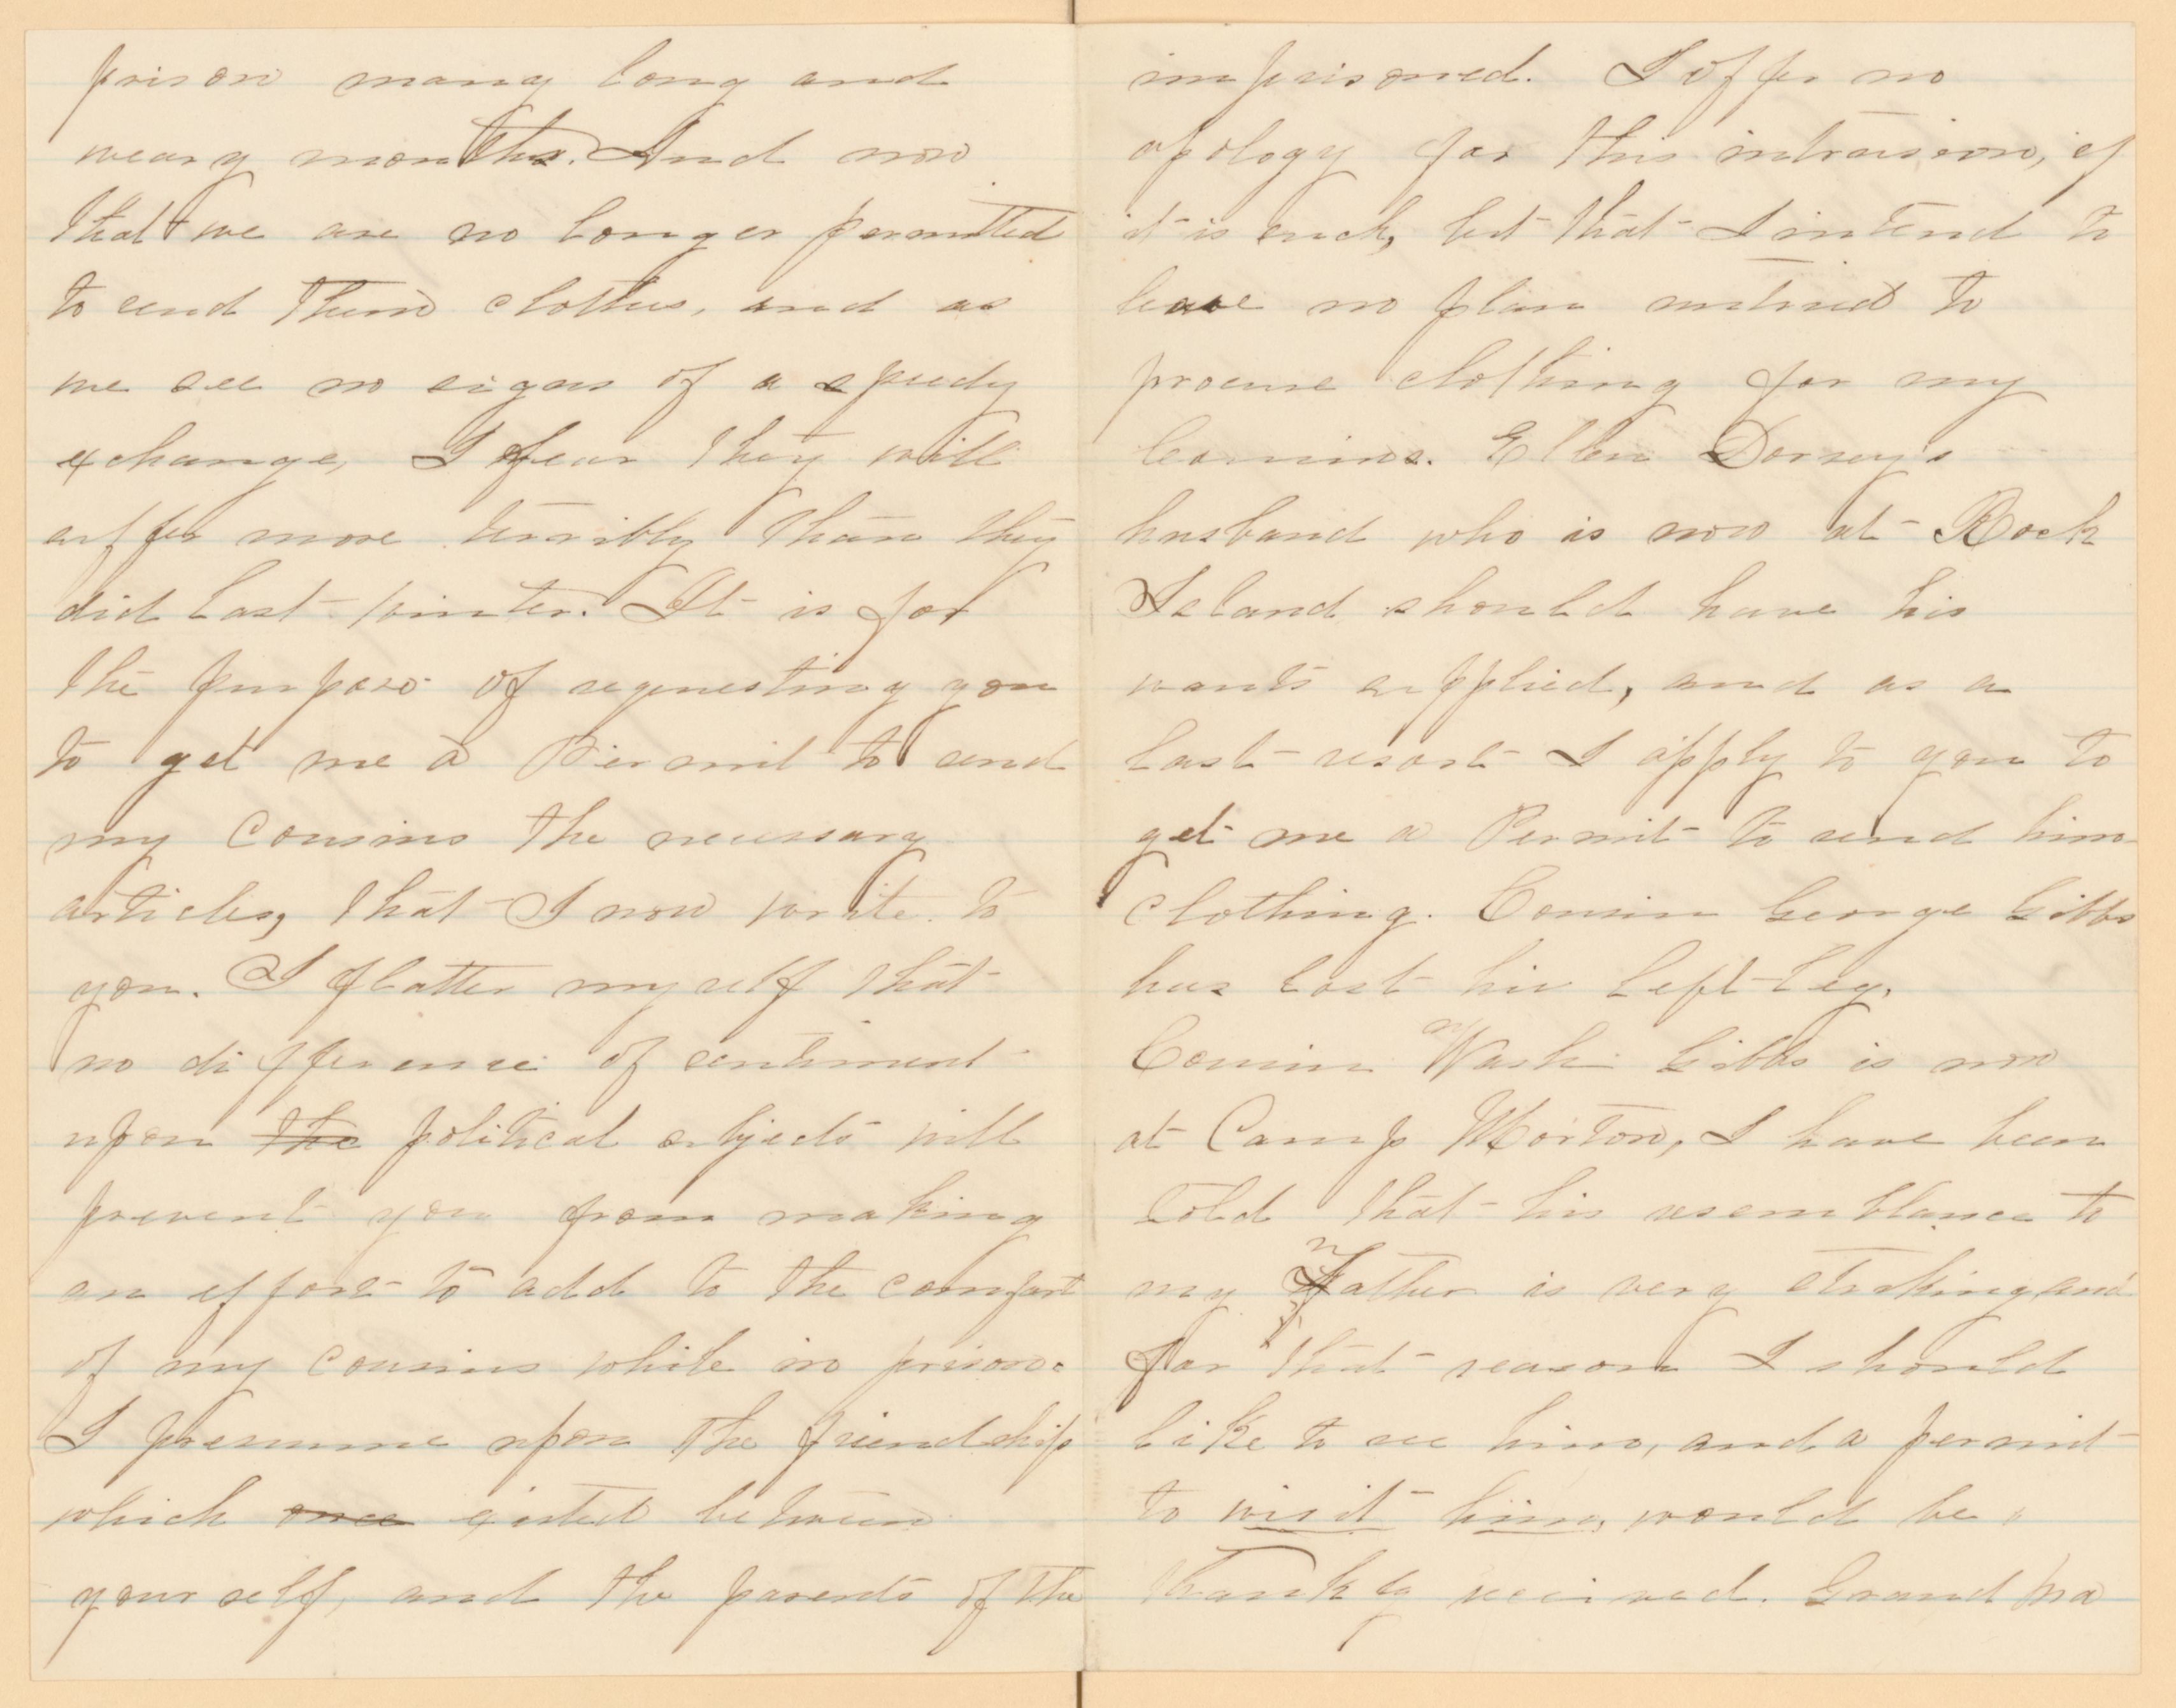 prison many long and
weary months. And now
that we are no longer permitted
to send them clothes, and as
we see no signs of a speedy
exchange, I fear they will
suffer more terribly than they
did last winter. It is for
the purpose of requesting you
to get me a Permit to send
my Cousins the necessary
articles, that I now write to
you. I flatter myself that
no difference of sentiment
upon the political subjects will
prevent you from making
an effort to add to the comfort
of my Cousins while in prison.
I presume upon the friendship
which once existed between
yourself, and the parents of the
imprisoned. I offer no
apology for this intrusion, if
it is such, but that I intend to
leave no plan untried to
procure clothing for my
Cousins. Ellen Dorsey's
husband who is now at Rock
Island should have his
wants supplied, and as a
last resort I apply to you to
get me a Permit to send him
Clothing. Cousin George Gibbs
has lost his left leg.
Cousin Wash Gibbs is now
at Camp Morton, I have been
told that his resemblance to
my Father is very striking, and
for that reason I should
like to see him, and a permit
to visit him, would be
thankfully received. Grand Ma